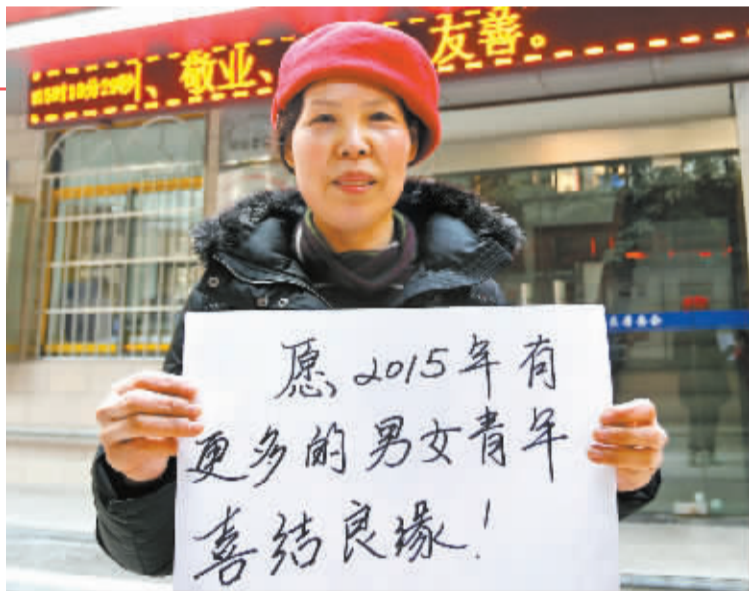 、敬业、
友善。
愿2015年有
更多的男女青年
喜结良缘!